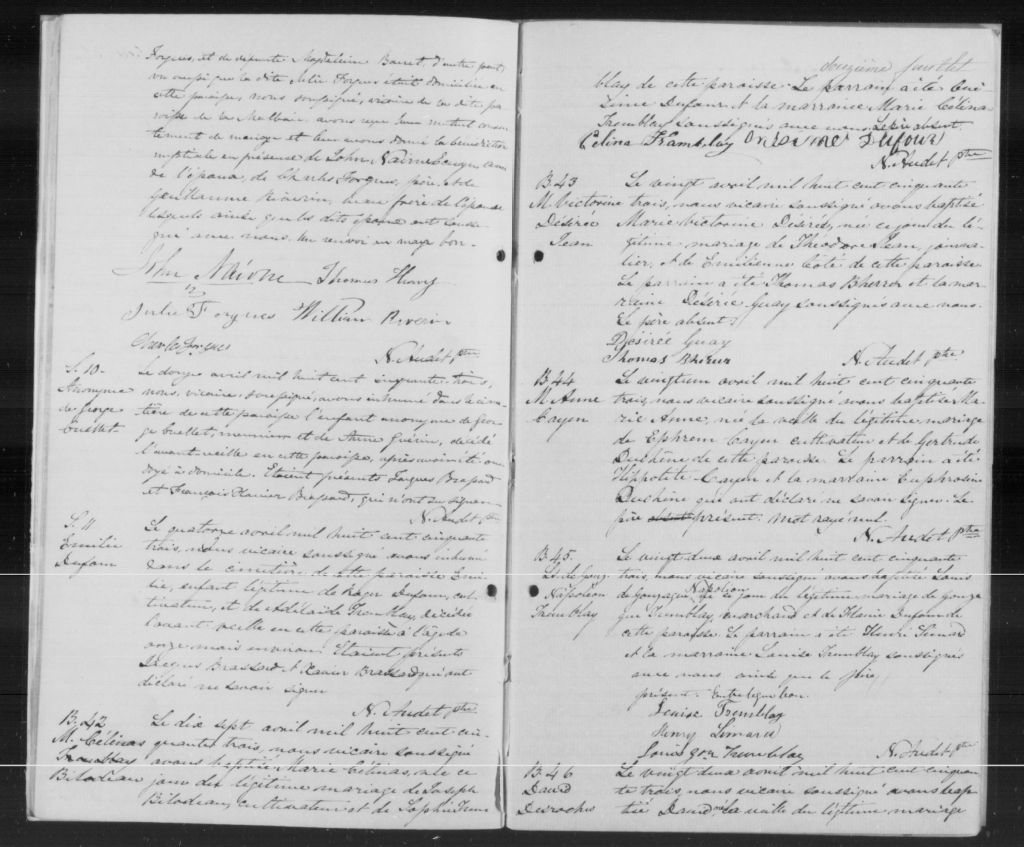 Forgues, et de défunte Magdeleine Barret, d'autre part,
vu aussi que la dite Julie Forgues étoit domiciliée en
cette paroisse, nous soussigné, vicaire de la dite pa-
roisse de la Malbaie avons reçu leur mutuel consen-
tement de mariage et leur avons donné la bénédiction
nuptiale en présence de John Nairne Ecuyer, ami
de l'époux, de Charles Forgues, père, et de
Guillaume Riverin, beau frère de l'épouse
lesquels ainsi que les dits époux ont sous-
signé avec nous. Un renvoi en marge bon.
John Nairne Thomas Henry
Julie Forgues William Riverin
Charles Forgues
N. Audet, ptre
S. 10
Anonyme
de George
Ouellet
Le douze avril mil huit cent cinquante trois,
nous, vicaire, soussigné, avons inhumé dans le cime-
tière de cette paroisse l'enfant anonyme de Geor-
ge Ouellet, meunier et de Anne Guérin, décédé
l'avant veille en cette paroisse, après avoir été on-
doyé à domicile. Etaient présents Jacques Brassard
et François Xavier Brassard, qui n'ont su signer
N. Audet, ptre
S. 11
Emilie
Dufour
Le quatorze avril mil huit cent cinquante
trois, Nous vicaire soussigné avons inhumé
dans le cimetière de cette paroisse Emi-
lie, enfant légitime de Roger Dufour, cul-
tivateur, et de Adelaide Tremblay, décédée
l'avant veille en cette paroisse à l'age de
onze mois environ. Etaient présents
Jacques Brassard et Xavier Brassard qui ont
déclaré ne savoir signer
N. Audet ptre
B. 42
M. Célinas
Tremblay
Bilodeau
Le dix sept avril mil huit cent cin-
quante trois, nous vicaire soussigné
avons baptisé Marie Célinas, née ce
jour du légitime mariage de Joseph
Bilodeau, cultivateur et de Sophie Trem
douzième feuillet
blay de cette paroisse. Le parrain a été Oné
zime Dufour, et la marraine Marie Célina
Tremblay soussignés avec nous. Le père absent.
Celina Tramblay Onésime Dufour
N. Audet, ptre
B. 43
M. Victorine
Désirée
Jean
Le vingt avril mil huit cent cinquante
trois, nous vicaire soussigné avons baptisé
Marie Victorine Désirée, née ce jour du lé-
gitime mariage de Théodore Jean, journa-
lier, et de Emilienne Coté de cette paroisse.
Le parrain a été Thomas Bherer et la mar-
raine Désirée Guay soussignés avec nous.
Le père absent.
Désirée Guay
Thomas Bhérer
N. Audet ptre
B. 44
M. Anne
Cayen
Le vingt un avril mil huit cent cinquante
trois, nous vicaire soussigné avons baptisé Ma-
rie Anne, née la veille du légitime mariage
de Ephrem Cayen cultivateur et de Gertrude
Duchêne de cette paroisse. Le parrain a été
Hippolite Cayen et la marraine Euphrosine
Duchêne qui ont déclaré ne savoir signer. Le
père absent présent. Mot rayé nul.
N. Audet, ptre
B. 45
Ls. de Gonz.
Napoléon
Tremblay
Le vingt deux avril mil huit cent cinquante
trois, nous vicaire soussigné avons baptisé Louis
de Gonzague Napoléon né ce jour du légitime mariage de Gonza
gue Tremblay, marchand et de Flavie Dufour de
cette paroisse. Le parrain a été Henri Simard
et la marraine Louise Tremblay soussignés
avec nous ainsi que le père,
présent. Entreligne bon.
Louise Tremblay
Henry Simard
Louis Gon Tremblay
N. Audet, ptre
B. 46
David
Desroches
Le vingt deux avril mil huit cent cinquan
te trois, nous vicaire soussigné avons bap
tisé David, né la veille du légitime mariage